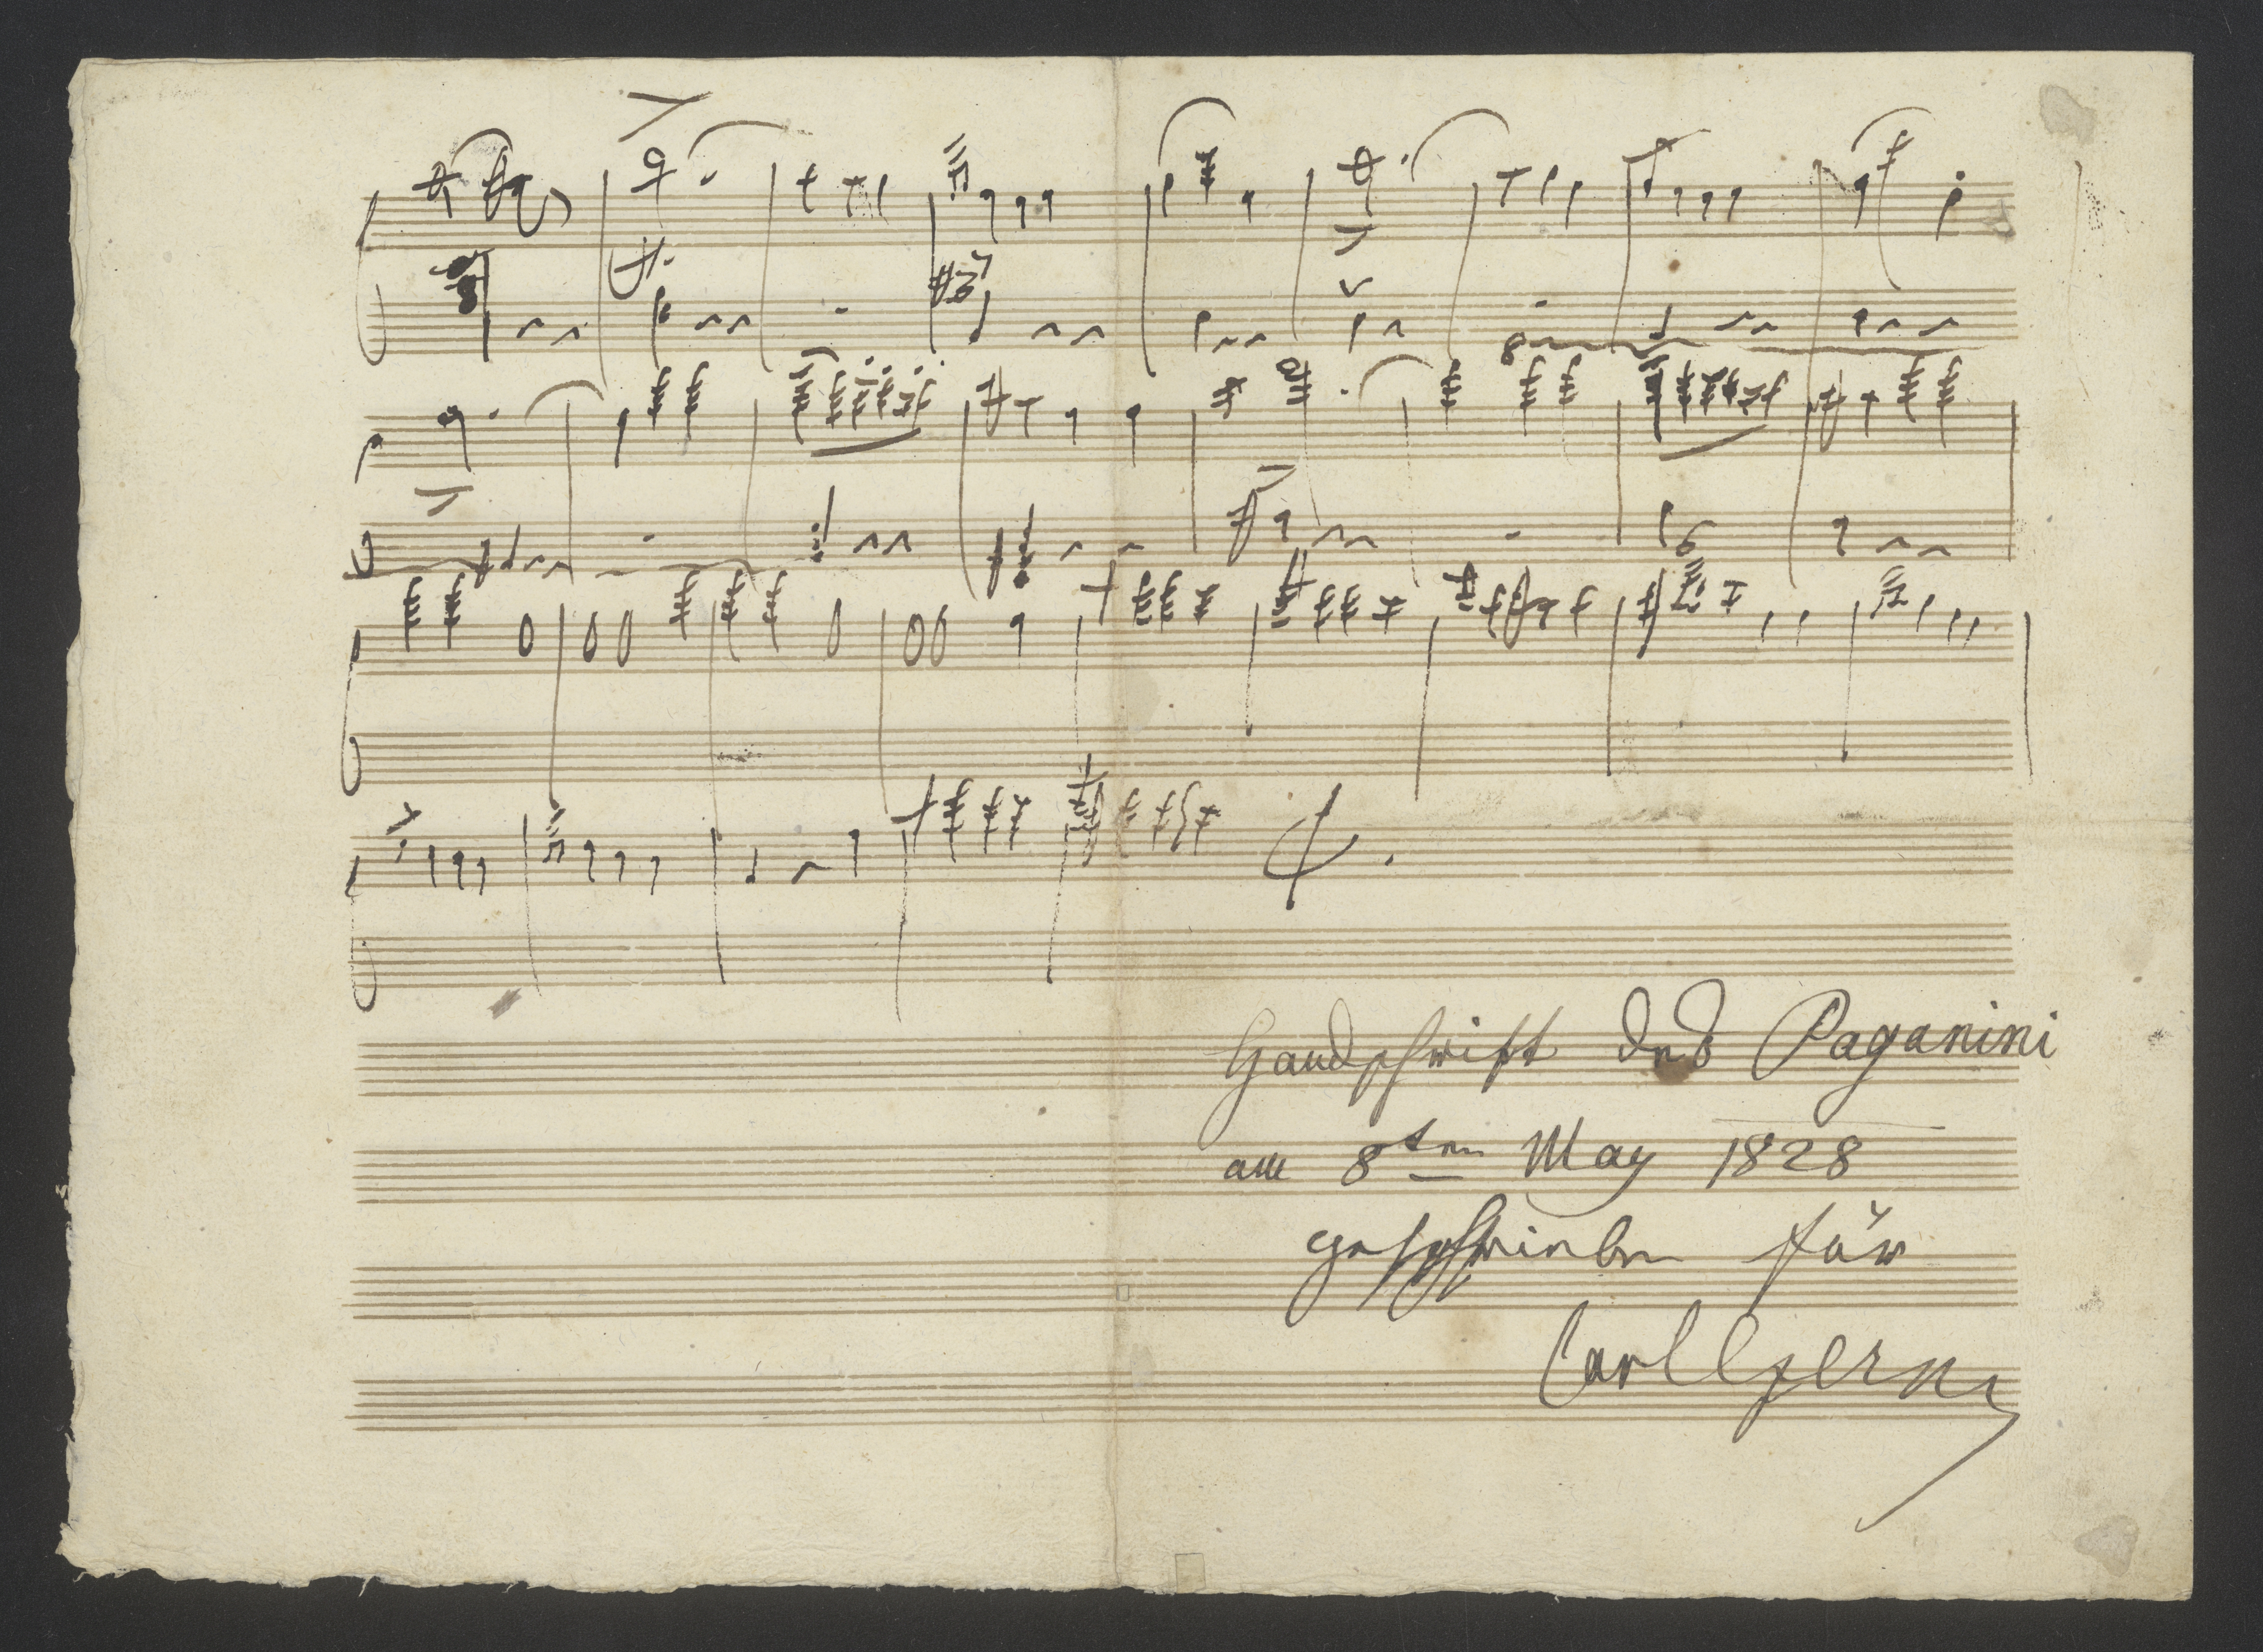 Handschrift des Paganini
am 8ten May 1828
geschrieben für
Carl Czerny